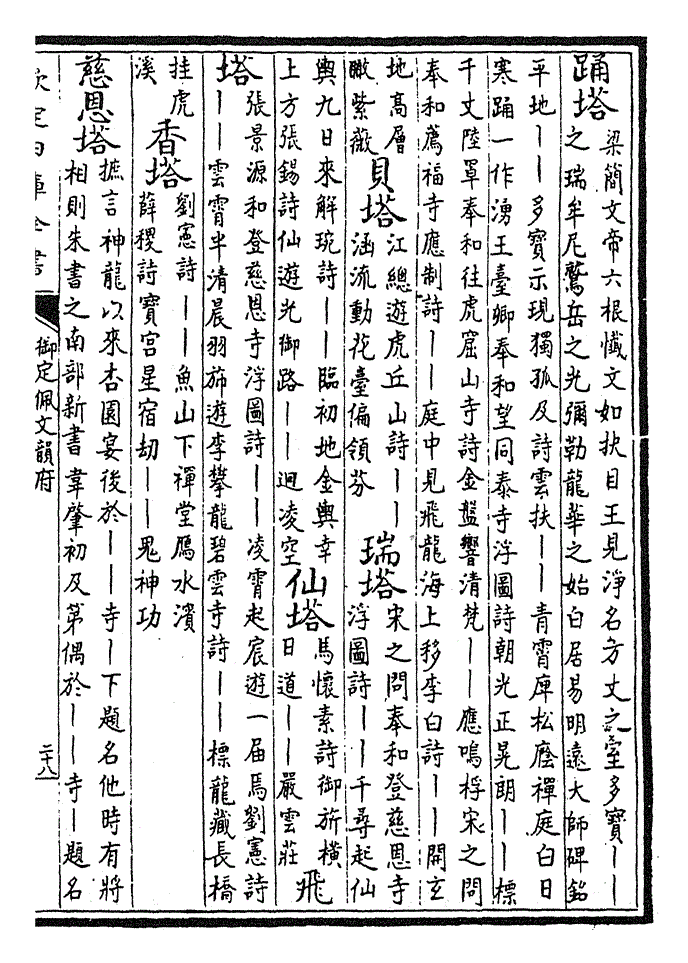 踊塔
梁簡文帝六根懺文如抉目王見淨名方丈之室多寶｜｜
之瑞牟尼鷲岳之光彌勒龍華之始白居易明遠大師碑銘
平地｜｜多寶示現獨孤及詩雲扶｜｜青霄庳松蔭禪庭白日
寒踊一作湧王臺卿奉和望同泰寺浮圖詩朝光正晃朗｜｜標
千丈陸罩奉和往虎窟山寺詩金盤響清梵｜｜應鳴桴宋之問
奉和薦福寺應制詩｜｜庭中見飛龍海上移李白詩｜｜開玄
地高層
瞰紫微
貝塔
江總遊虎丘山詩｜｜
涵流動花臺偏領芬
瑞塔
宋之問奉和登慈恩寺
浮圖詩｜｜千尋起仙
輿九日來解琬詩｜｜臨初地金輿幸
上方張錫詩仙遊光御路｜｜迥凌空
仙塔
馬懷素詩御旂橫
日道｜｜嚴雲莊
飛塔
張景源和登慈恩寺浮圖詩｜｜凌霄起宸遊一屆焉劉憲詩
｜｜雲霄半清晨羽旆遊李攀龍碧雲寺詩｜｜標龍藏長橋
挂虎
溪
香塔
劉憲詩｜｜魚山下禪堂雁水濱
薛稷詩寶宫星宿劫｜｜鬼神功
慈恩塔
摭言神龍以來杏園宴後於｜｜寺｜下題名他時有將
相則朱書之南部新書韋肇初及第偶於｜｜寺｜題名
欽定四庫全書
御定佩文韻府
二十八